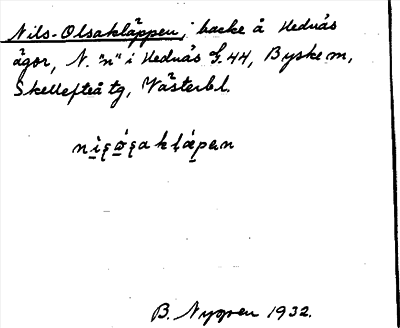 Nils-Olsakläppen, backe å Hednäs
ägor, N. "n" i Hednäs S. 44, Byske sn,
Skellefteå tg, Västerbl.
B. Nygren 1932.